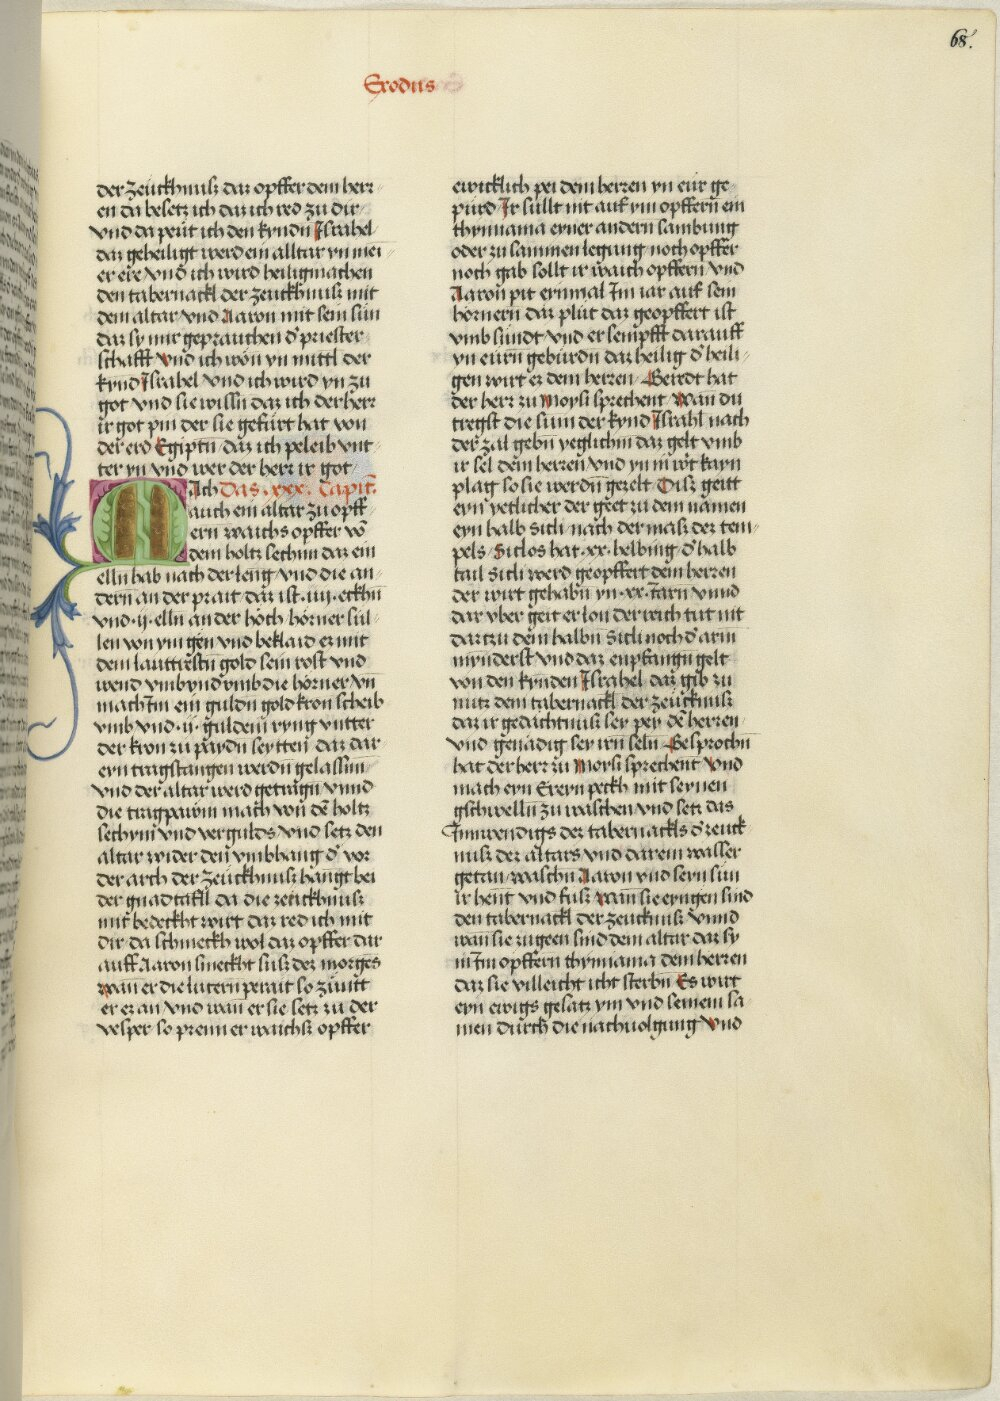 68.
Exodus
der zeuckhnusz daz opffer dem herr
en da besetz ich daz ich red zu dir
vnd da peut ich den kyndn̄ Israhel
daz geheiligt werd ein alltar yn mei
er ere vnd ich wird heiligmachen
den tabernackl der zeuckhnusz mit
dem altar vnd Aaron mit sein sün
daz sy mir geprauchen d' priester
schafft vnd ich won yn mittl der
kynd Israhel vnd ich wird yn zu
got vnd sie wissn̄ daz ich der herr
ir got pin der sie gefürt hat von
der erd Egiptn̄ daz ich peleib vnt
ter yn vnd wer der herr ir got
Mach Das .xxx. Capit̄.
auch ein altar zu opff
ern waichs opffer vō
dem holtz sechim daz ein
elln̄ hab nach der leng vnd die an
dern an der prait daz ist .iiij. eckhn̄
vnd .ij. elln̄ an der höch hörner sül
len von ym gen vnd beklaid ez mit
dem lauttristn̄ gold sein rost vnd
wend vmb vnd vmb die hörner vn̄
mach Im ein guldn̄ gold kron scheib
vmb vnd .ij. guldein̄ ryng vntter
der kron zu paydn̄ seyttn̄ daz dar
eyn tragstangen werdn̄ gelassen
vnd der altar werd getragn̄ vnnd
die tragpawm mach von dē holtz
sechym vnd vergulds vnd setz den
altar wider den̄ vmbhang d' vor
der arch der zeuckhnusz hangt bei
der gnad tafll da die zeuckhnusz
mit bedeckht wirt daz red ich mit
dir da schmeckh wol daz opffer dar
auff Aaron smeckht susz dez morges
wan er die lucern perait so zunt
er ez an vnd wan er sie setz zu der
vesper so prenn er waichsz opffer
ewicklich pei dem herren yn eur ge
purd Ir sullt nit auf ym opffern̄ ein
thymiama eyner andern sambung
oder zu sammen legung noch opffer
noch gab sollt ir waich opffern vnd
Aaron pit eynmal Im iar auf sein
hörnern daz plut daz geopffert ist
vmb sündt vnd er sempfft darauff
yn eurn̄ geburdn̄ daz heilig d' heili
gen wirt ez dem herren Geredt hat
der herr zu Moysi sprechent Wan du
tregst die sum der kynd Israhl nach
der zal gebn̄ yeglichm̄ daz gelt vmb
ir sel dem herren vnd yn in wirt kayn
plag so sie werdn̄ gezelt Disz geitt
eyn yetlicher der geet zu dem namen
eyn halb sicli nach der masz dez tem
pels Siclos hat .xx. helbing d' halb
tail sicli werd geopffert dem herren
der wirt gehabn̄ yn .xx. Jarn vnnd
dar vber geit er lon der reich tut nit
dartzu dem halbn̄ sicli noch d' arm
mynderst vnd daz enpfangn̄ gelt
von den kynden Israhel daz gib zu
nutz dem tabernackl der zeucknusz
daz ir gedächtnusz sey pey dē herren
vnd genädig sey irn̄ seln̄ Gesprochn̄
hat der herr zu Moysi sprechent Vnd
mach eyn Ereyn peckh mit seynen
gschwelln̄ zu waschen vnd setz das
Innwendigs dez tabernackls d' zeuck
nusz dez altars vnd darein wasser
getan waschn̄ Aaron vnd seyn sün
ir hent vnd fusz wan̄ sie eyngen sind
den tabernackl der zeucknusz vnnd
wan̄ sie zugeen sind dem altar daz sy
in Im opffern thymiama dem herren
daz sie villeicht icht sterbn̄ Es wirt
eyn ewigs gesatz ym vnd seinem sa
men durch die nachuolgung Vnd